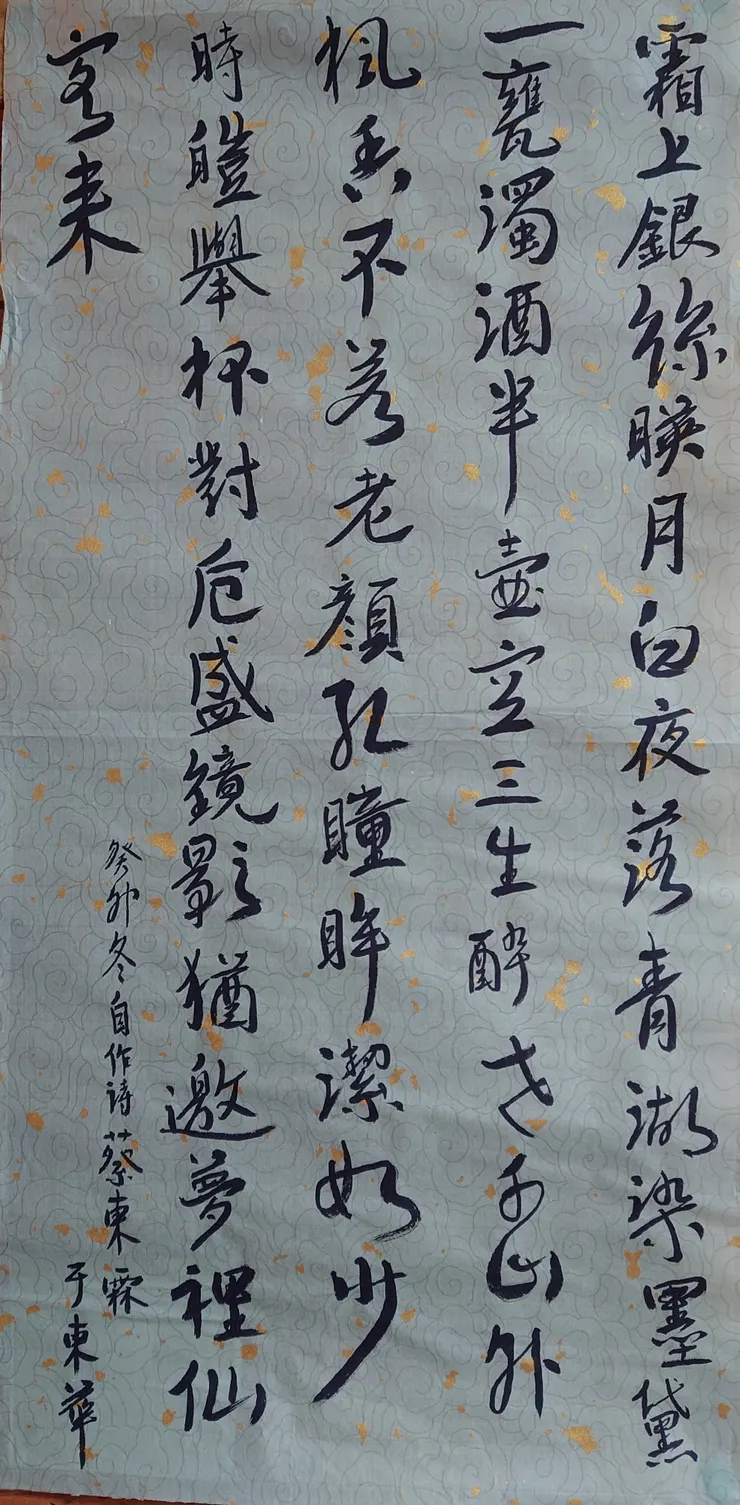 霜上銀絲暎月白夜落青湖染墨黛
一甕濁酒半壺空三生醉老千山外
楓香不落老顏孔瞳眸潔如少
時皚舉杯對卮盛鏡影猶邀夢裡仙
客来
癸卯冬自作詩蔡東霖
于東華